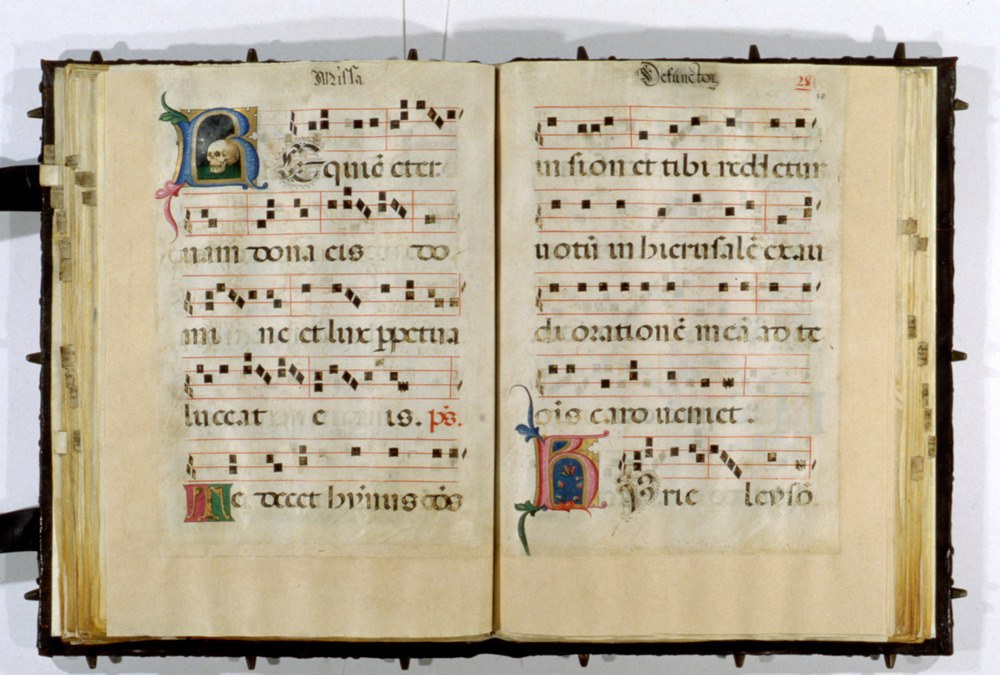 Missa
REquiē eter
nam dona eis do
mi ne et lux ppetua
luceat e is. ps.
Te decet hymnus dōs
Defunctor
28
in sion et tibi reddetur
uotū in hierusalē exau
di orationē meā ad te
oīs caro ueniet.
Kyrie leysō.